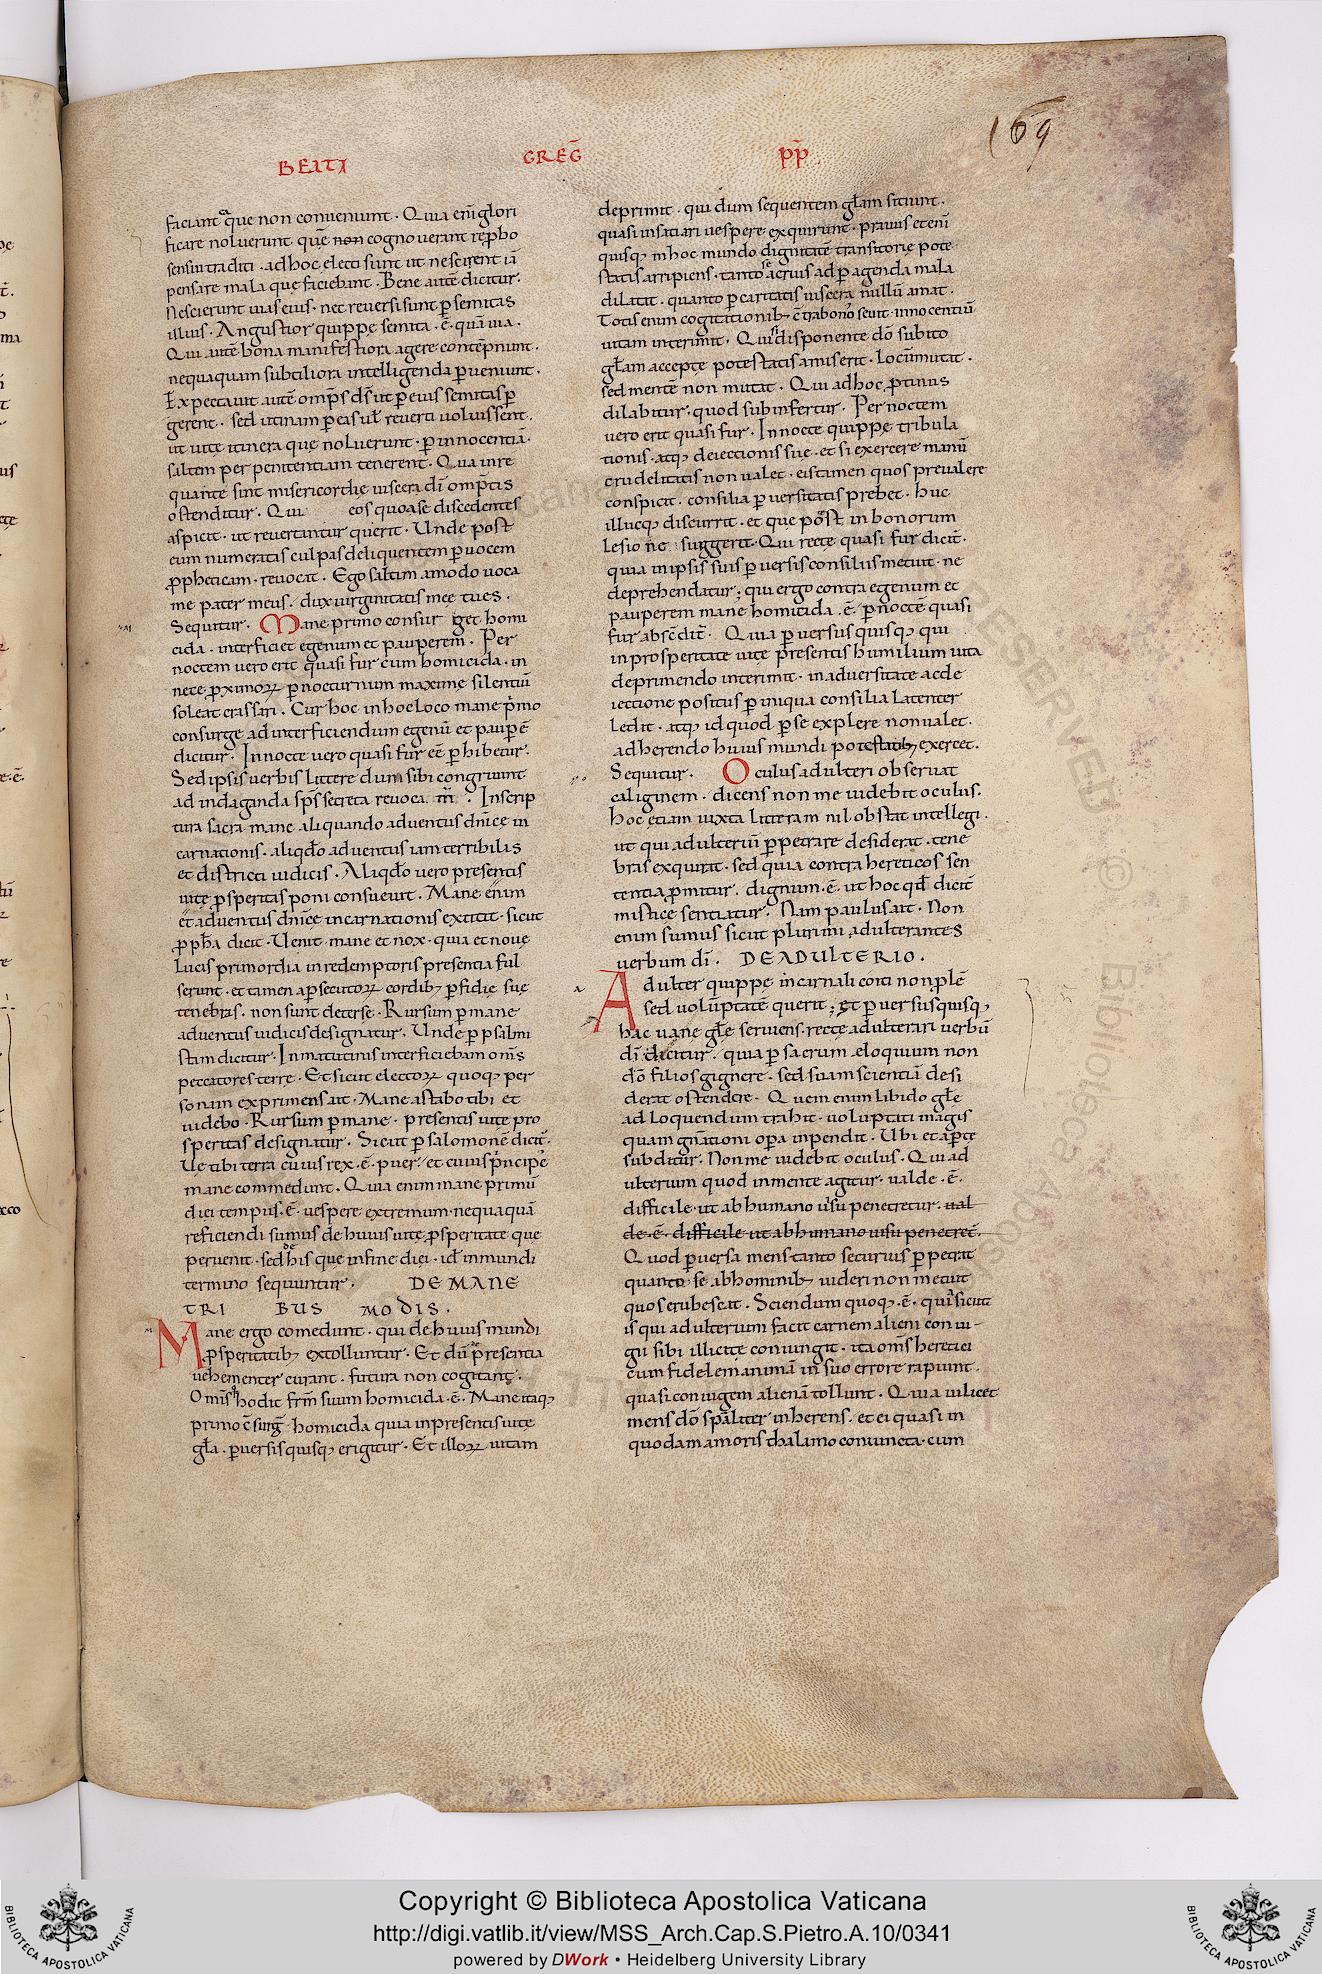 169
BEATI GREḠ P̄P̄
faciant q̄ que non conveniunt. Quia eni͂ glori
ficare noluerunt quē non cognoverant rep̱bo
sensui traditi. ad hoc electi sunt ut nescirent iā
pensare mala quę faciebant. Bene autē dicitur.
Nescierunt vias eius. nec reversi sunt p̱ semitas
illius. Angustior quippe semita .ē. quā via.
Qui autē bona manifestiora agere contēpnunt.
nequaquam subtiliora intelligenda p̱veniunt.
Expectavit autē omp̄s ds̄ ut p̱ eius semitas p̱
gerent. sed utinam p̱ eas ul̄ reverti voluissent.
ut vitę itinera quę noluerunt. p̱ innocentiā.
saltem per penitentiam tenerent. Qua in re
quantę sint misericordię viscera dī omp̄tis
ostenditur. Qui eos quos a se discedentes
aspicit. ut revertantur querit. Unde post
enumeratis culpas deliquentem p̱ vocem
p̱pheticam. revocat. Ego saltim amodo voca
me pater meus. dux virginitatis meę tu es.
Sequitur. Mane primo consurget homi
cida. interficiet egenum et pauperem. Per
noctem vero erit quasi fur cum homicida. in
nece p̱ximoꝝ p̱ nocturnum maxime silentiū
soleat crassari. Cur hoc in hoc loco mane p̄mo
consurge ad interficiendum egenū et paup̱ē
dicitur. In nocte vero quasi fur eē p̱hibetur.
Sed ipsis verbis littere dum sibi congruunt
ad indaganda sp̄s secreta revoca. m̄. Inscrip
tura sacra mane aliquando adventus dnīcę in
carnationis. aliqd̄o adventus iam terribilis
et districti iudicis. Aliqd̄o vero presentis
vitę p̱speritas poni consuevit. Mane enim
et adventus dnīcę incarnationis extitit. sicut
p̱ph̄a dicit. Venit mane et nox. quia et novę
lucis primordia in redemptoris presentia ful
serunt. et tamen a p̱secutoꝝ cordib; p̱fidię suę
tenebras. non sunt detersę. Rursum p̱ mane
adventus iudicis designatur. Unde p̱ psalmi
stam dicitur. In matutinis interficiebam omīs
peccatores terrę. Et sicut electoꝝ quoq; per
sonam exprimens ait. Mane astabo tibi et
videbo. Rursum p̱ mane. presentis vitę pro
speritas designatur. Sicut p̱ salomonē dicit̄.
Ve tibi terra cuius rex .ē. puer. et cuius p̄ncipes
mane commedunt. Quia enim mane primū
diei tempus .ē. vespere extremum. nequaquā
reficiendi sumus de huius vitę p̱speritate que
pervenit. sed de his que in fine diei. id̄ in mundi
termino sequuntur. DE MANE
TRI BUS MODIS.
Mane ergo comedunt. qui de huius mundi
p̱speritatib; extolluntur. Et dū presentia
vehementer curant. futura non cogitant.
Omīs q̄ hodit frm̄ suum homicida .ē. Mane itaq;
primo c̄surg̃ homicida quia in presentis vitę
gl̄a. p̱versis quisq; erigitur. Et illoꝝ vitam
deprimit. qui dum sequentem gl̄am sitiunt.
quasi insatiari vespere exquirunt. pravus etenī
quisq; in hoc mundo dignitatē transitorię pote
statis arripiens. tanto se acrius ad p̱agenda mala
dilatat. quanto p̱ caritatis viscera nullū amat.
Totis enim cogitationib; c̄tra bonoꝝ sevit. innocentiū
vitam interimit. Qui si disponente dō subito
gl̄am acceptę potestatis amiserit. locū mutat.
sed mentē non mutat. Qui ad hoc p̱tinus
dilabitur. quod subinfertur. Per noctem
vero erit quasi fur. In nocte quippe tribula
tionis. atq; deiectionis suę. et si exercere manū
crudelitatis non valet. eis tamen quos prevalere
conspicit. consilia p̱versitatis prebet. huc
illucq; discurrit. et que pōst in bonorum
lesione suggerit. Qui recte quasi fur dicit̄.
quia in ipsis suis p̱versis consiliis metuit. ne
deprehendatur; qui ergo contra egenum et
pauperem mane homicida .ē. p̱ noctē quasi
fur abscōdit̄. Quia p̱versus quisq; qui
in prosperitate vitę presentis humilium vita
deprimendo interimit. in adversitate ac de
iectione positus p̱ iniqua consilia latenter
ledit. atq; id quod p̱ se explere non valet.
adherendo huius mundi potestatib; exercet.
Sequitur. Oculus adulteri observat
caliginem. dicens non me videbit oculus.
Hoc etiam iuxta litteram nil obstat intellegi.
ut qui adulteriū p̱petrare desiderat. tene
bras exquirat. sed quia contra hereticos sen
tentia p̱mitur. dignum .ē. ut hoc qd̄ dicit̄
misticę sentiatur. Nam paulus ait. Non
enim sumus sicut plurimi adulterantes
verbum dī. DE ADULTERIO.
Adulter quippe in carnali coitu non p̱lē
sed voluptatē querit; et p̱versus quisq;
hac vanę gl̄ę serviens. recte adulterari verbū
dī dicitur. quia p̱ sacrum eloquium non
dō filios gignere. sed suam scientiā desi
derat ostendere. Quem enim libido gl̄ę
ad loquendum trahit. voluptati magis
quam gn̄ationi op̱a inpendit. Ubi et ap̱te
subditur. Non me videbit oculus. Qui ad
ulterium quod in mente agitur. valde .ē.
difficile. ut ab humano visu penetretur. val
de .ē. difficile ut ab humano visu penetret̄.
Quod p̱versa mens tanto securius p̱petrat
quanto se ab hominib; videri non metuit
quos erubescat. Sciendum quoq; .ē. quī sicut
is qui adulterium facit carnem alieni coniu-
gii sibi illicite coniungit. ita omīs heretici
cum fidelem animā in suo errore rapiunt.
quasi coniugem alienā tollunt. Quia vilicet
mens dō spāliter inherens. et ei quasi in
quodam amoris thalamo coniuncta. cum
Copyright © Biblioteca Apostolica Vaticana
http://digi.vatlib.it/view/MSS_Arch.Cap.S.Pietro.A.10/0341
powered by DWork • Heidelberg University Library
BIBLIOTECA APOSTOLICA VATICANA
BIBLIOTECA APOSTOLICA VATICANA